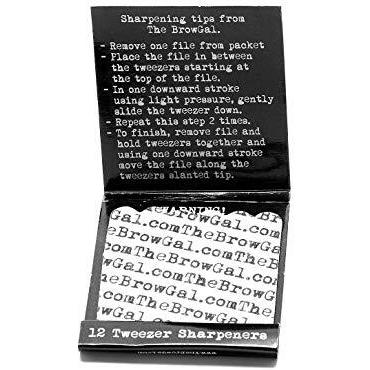 Sharpening tips from
The BrowGal.
- Remove one file from packet
- Place the file in between
the tweezers starting at
the top of the file.
- In one downward stroke
using light pressure, gently
slide the tweezer down.
- Repeat this step 2 times.
- To finish, remove file and
hold tweezers together and
using one downward stroke
move the file along the
tweezers slanted tip.
WARNING!
Gal.comTheBrowGal.
comTheBrowGal.com
TheBrowGal.comThe
BrowGal.comTheBrow
Gal.comTheBrowGal.
comTheBrowGal.com
12 Tweezer Sharpeners
www.TheBrowGal.com